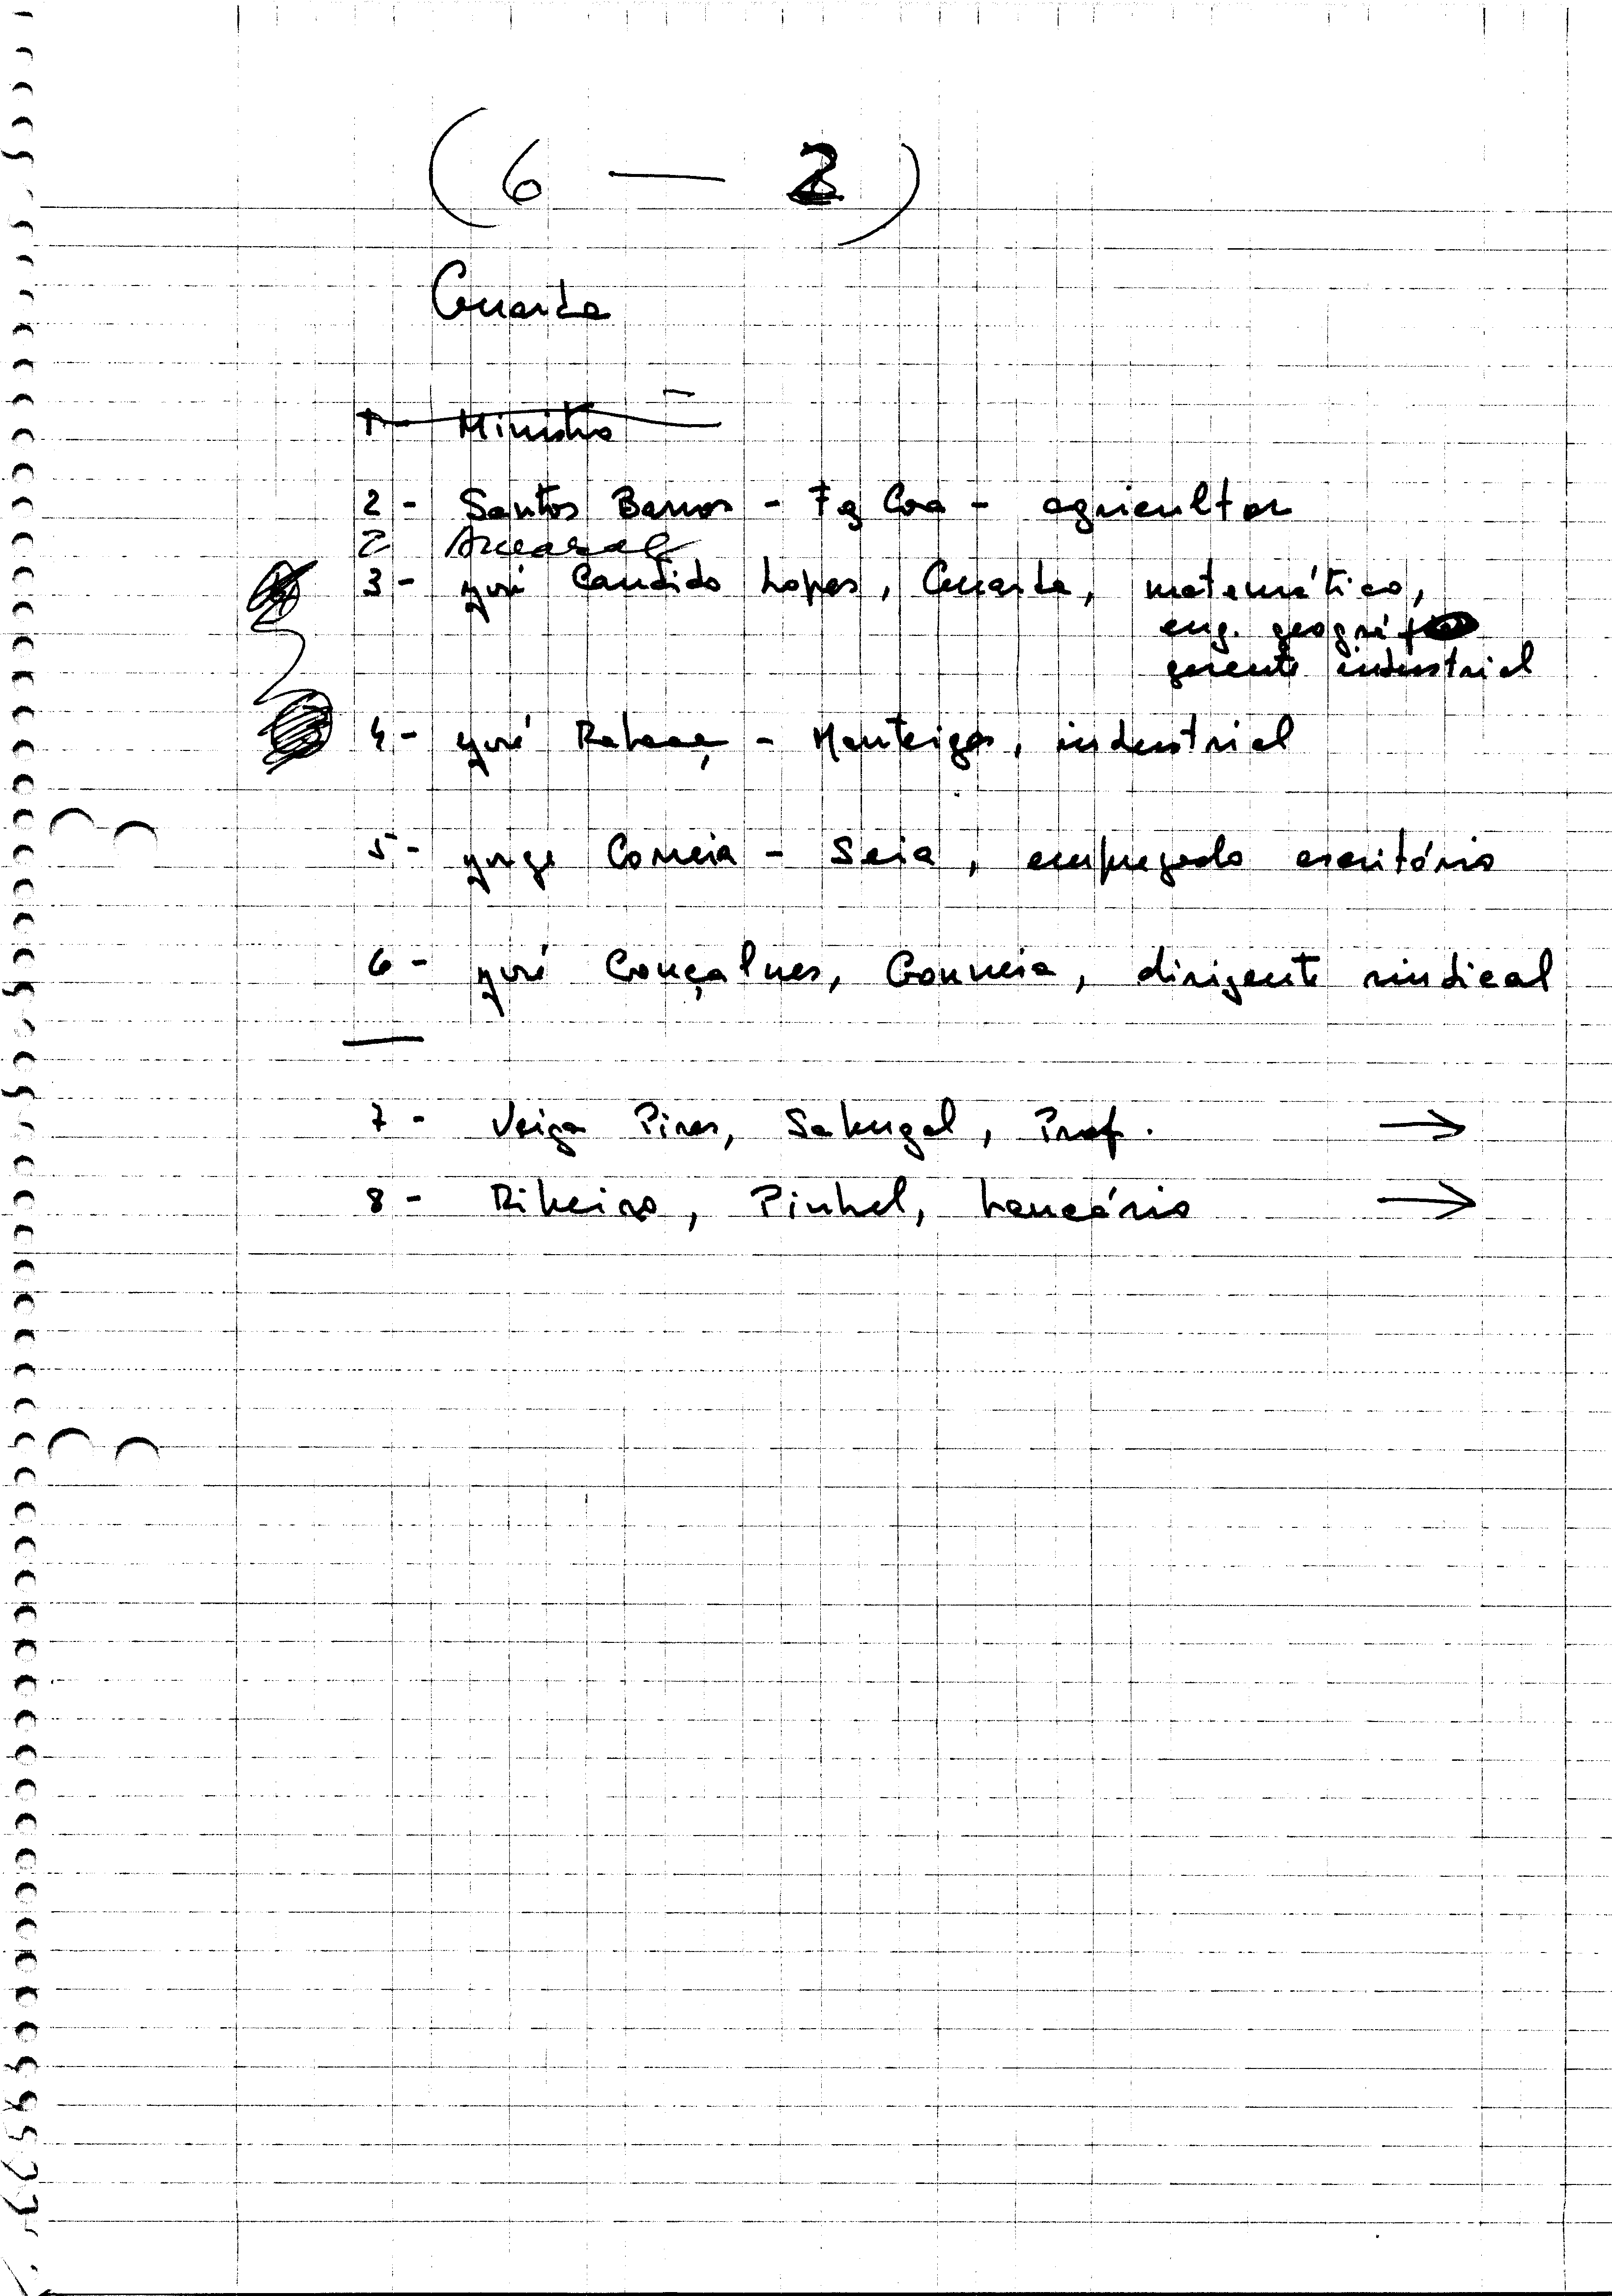 (6 — 2)
Guarda
1 - Ministro
2 - Santos Barros - Fg Coa - agricultor
2
3 - José Candido Lopes, Guarda, matemático,
eng. geográf
gerente industrial
4 - José Rabaça - Manteigas, industrial
5 - Jorge Correia - Seia, empregado escritório
6 - José Gonçalves, Gouveia, dirigente sindical
7 - Veiga Pires, Sabugal, Prof. →
8 - Ribeiro, Pinhel, bancário →